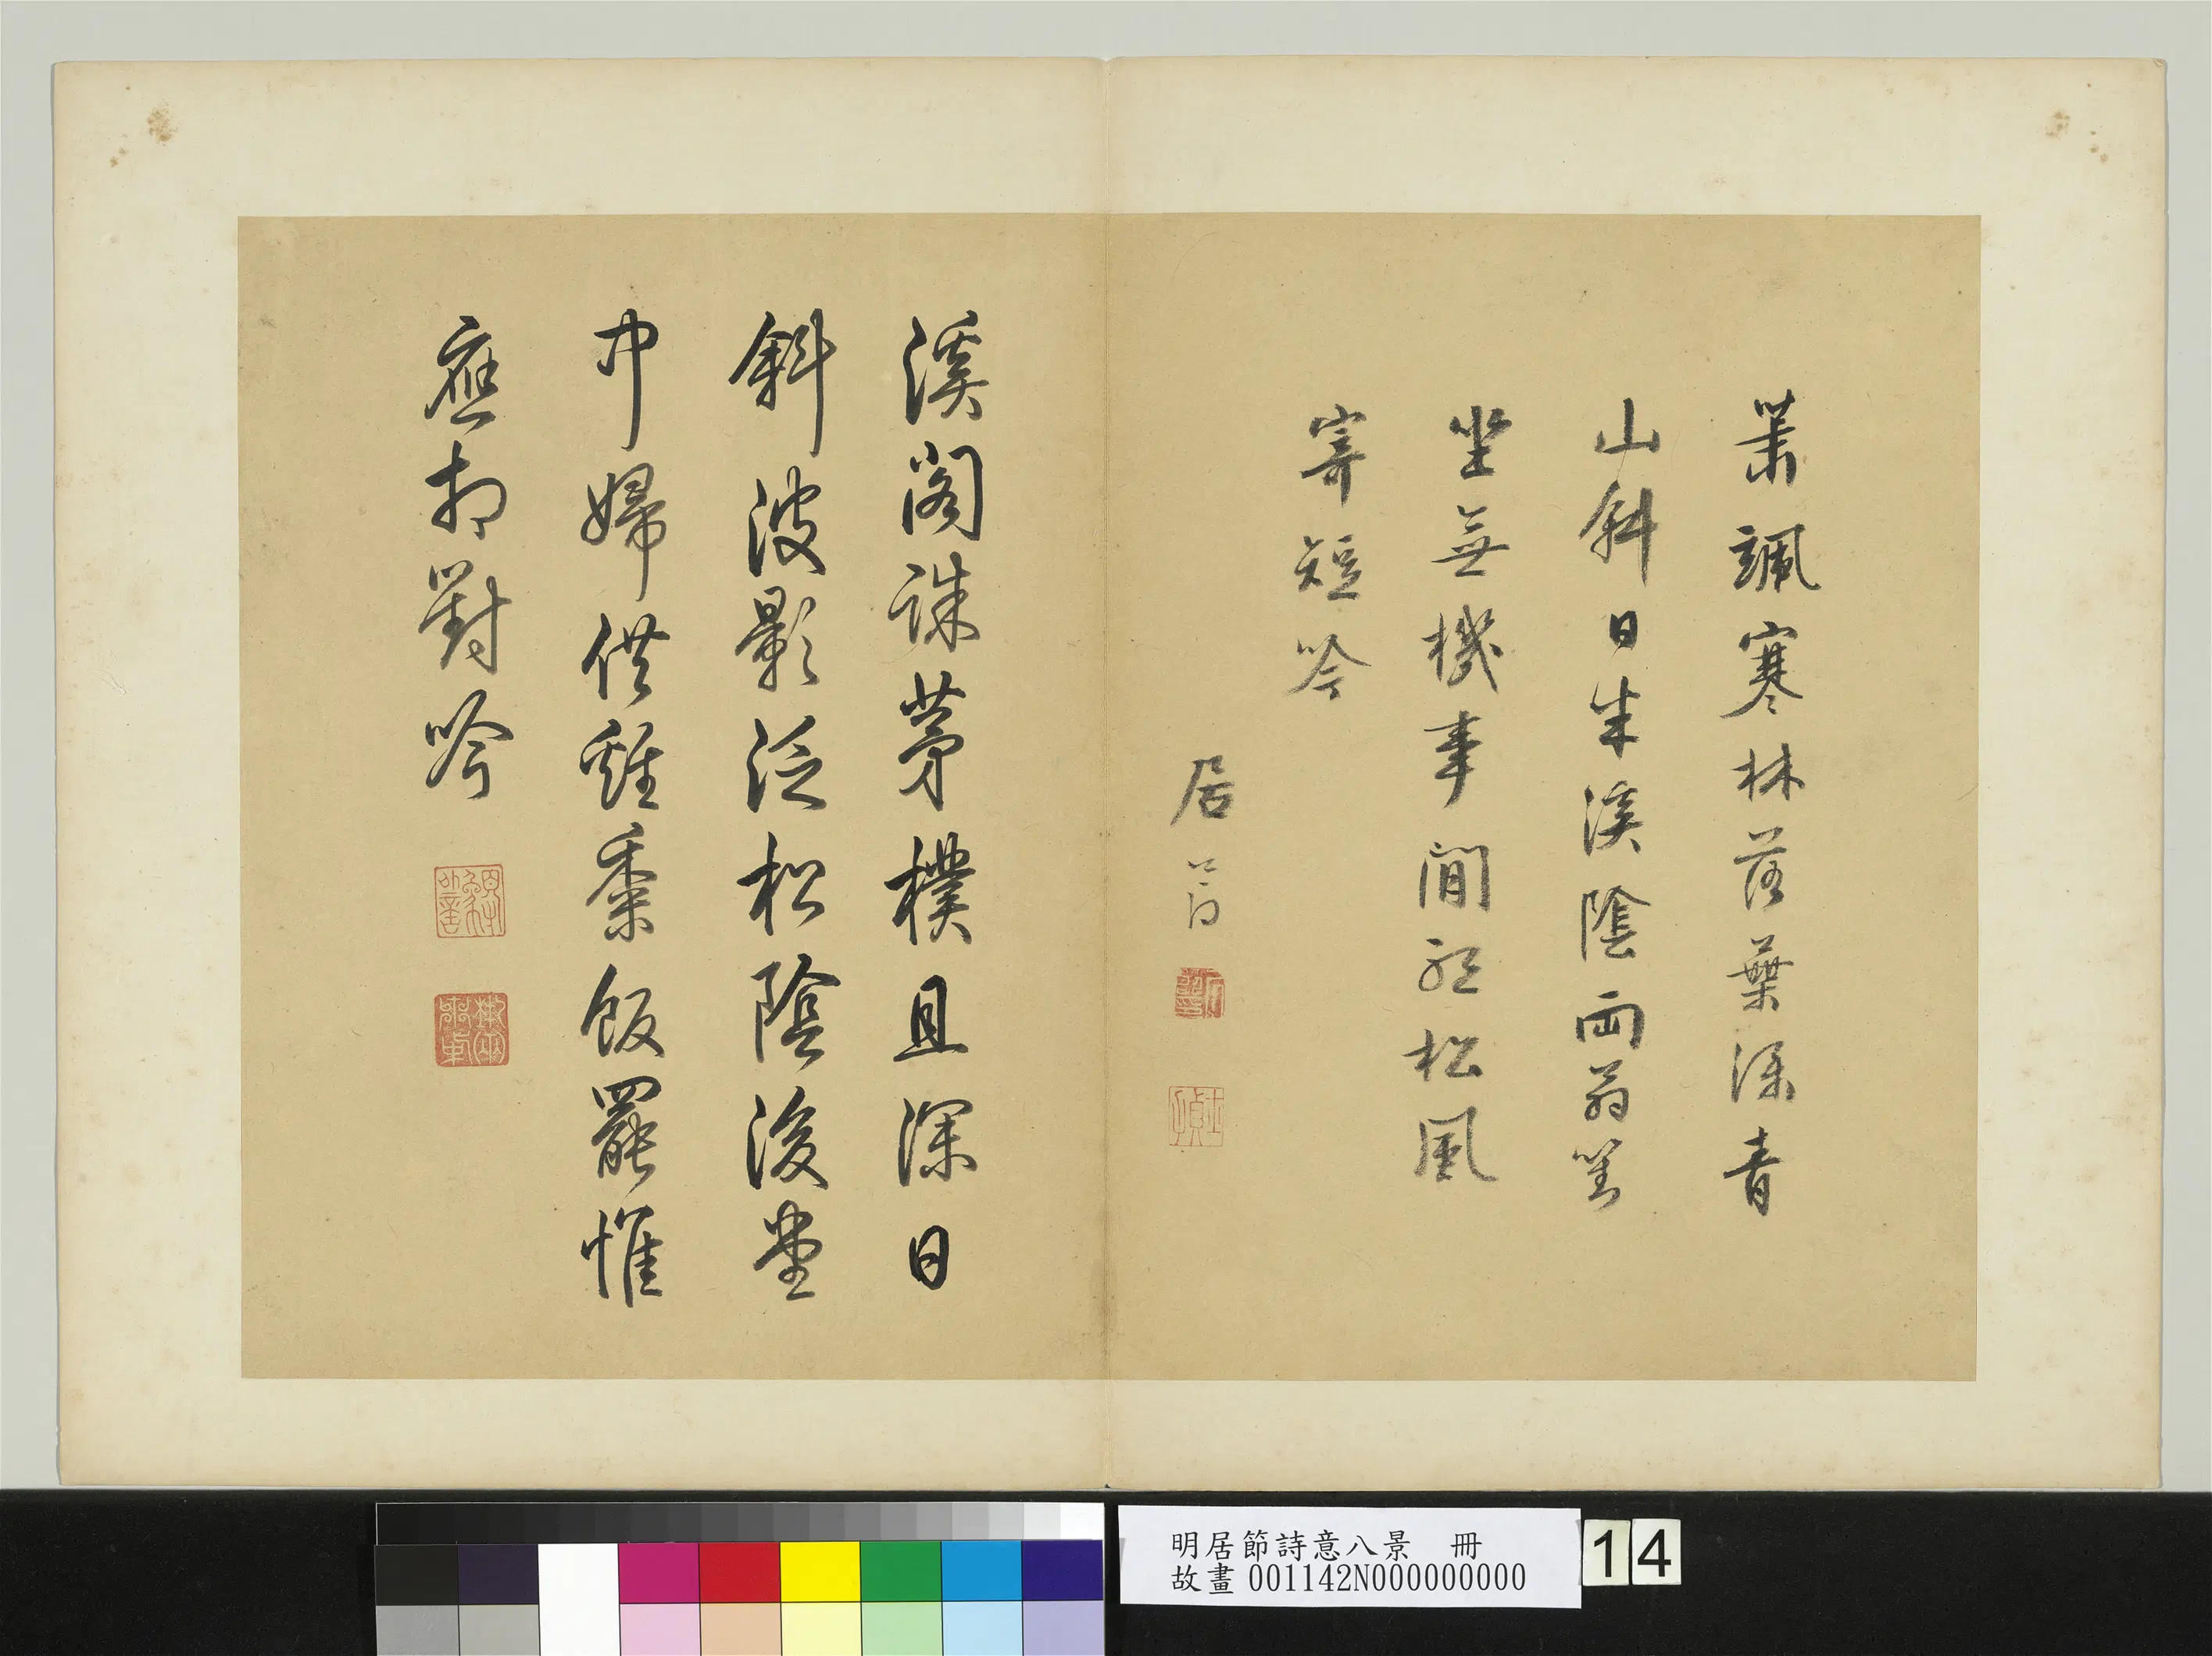 蕭颯寒林落葉深青
山斜日半溪陰兩翁坐
坐無機事閒聽松風
寄短吟
居節
溪閣誅茅樸且深日
斜波影泛松陰後堂
中婦供雞黍飯罷惟
應相對吟
明居節詩意八景 冊
故畫 001142N000000000
14